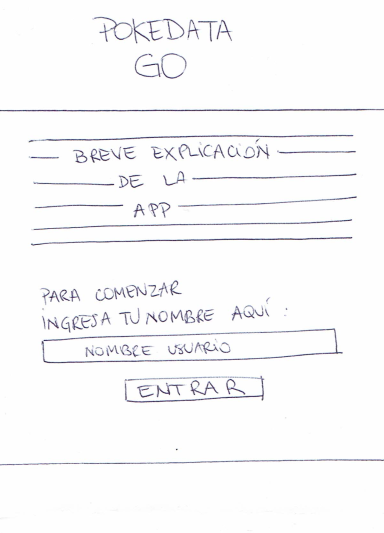 POKEDATA
GO
BREVE EXPLICACIÓN
DE LA
APP
PARA COMENZAR
INGRESA TU NOMBRE AQUÍ :
NOMBRE USUARIO
ENTRAR